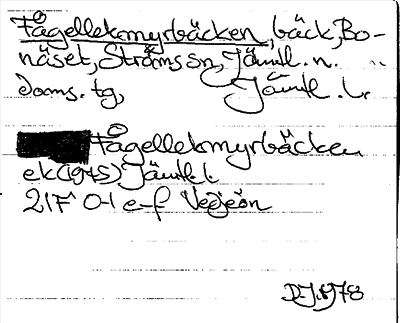 Fågellekmyrbäcken, bäck, Bo-
näset, Ströms sn, Jämtl. n.
doms. tg, Jämtl. l.
Fågellekmyrbäcken
ek (1945) Jämtl. l.
21F 0-1 e-f Vedjeön
1978